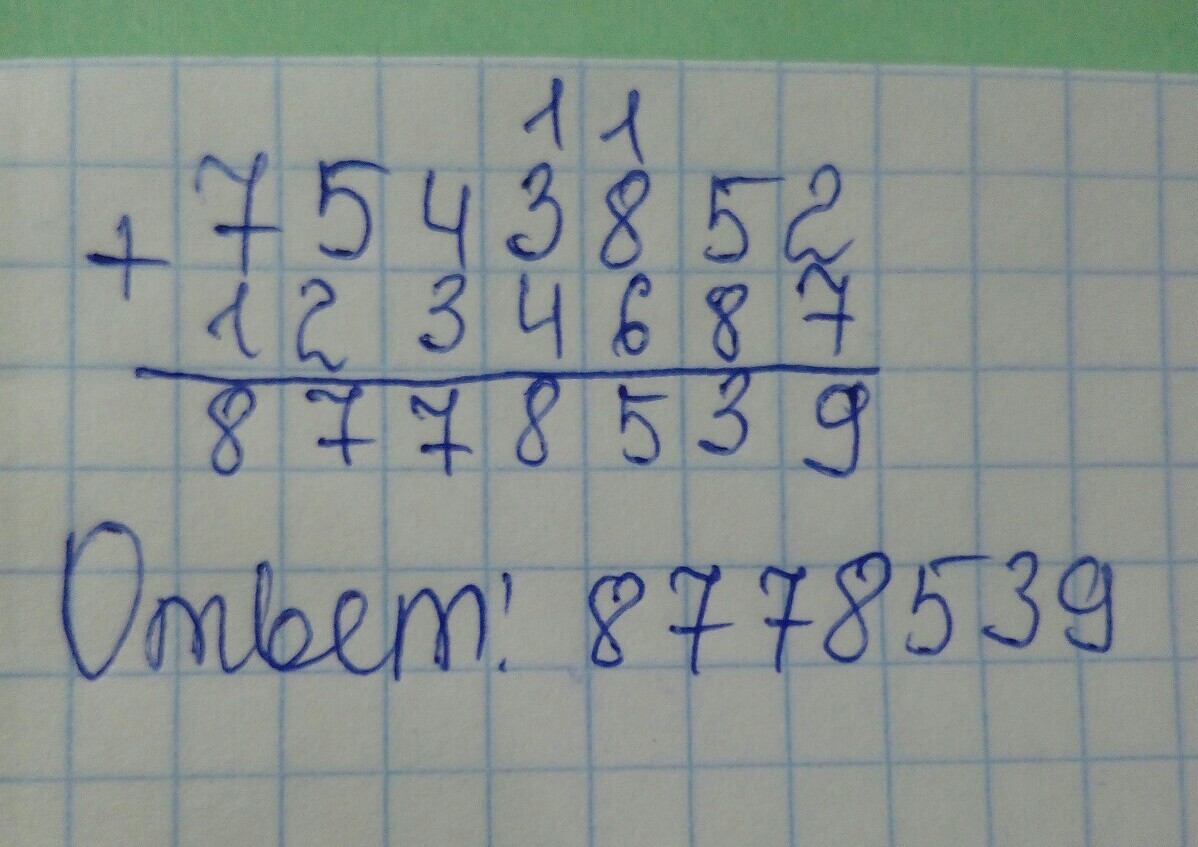 1 1
+ 7 5 4 3 8 5 2
1 2 3 4 6 8 7
8 7 7 8 5 3 9
Ответ: 8778539